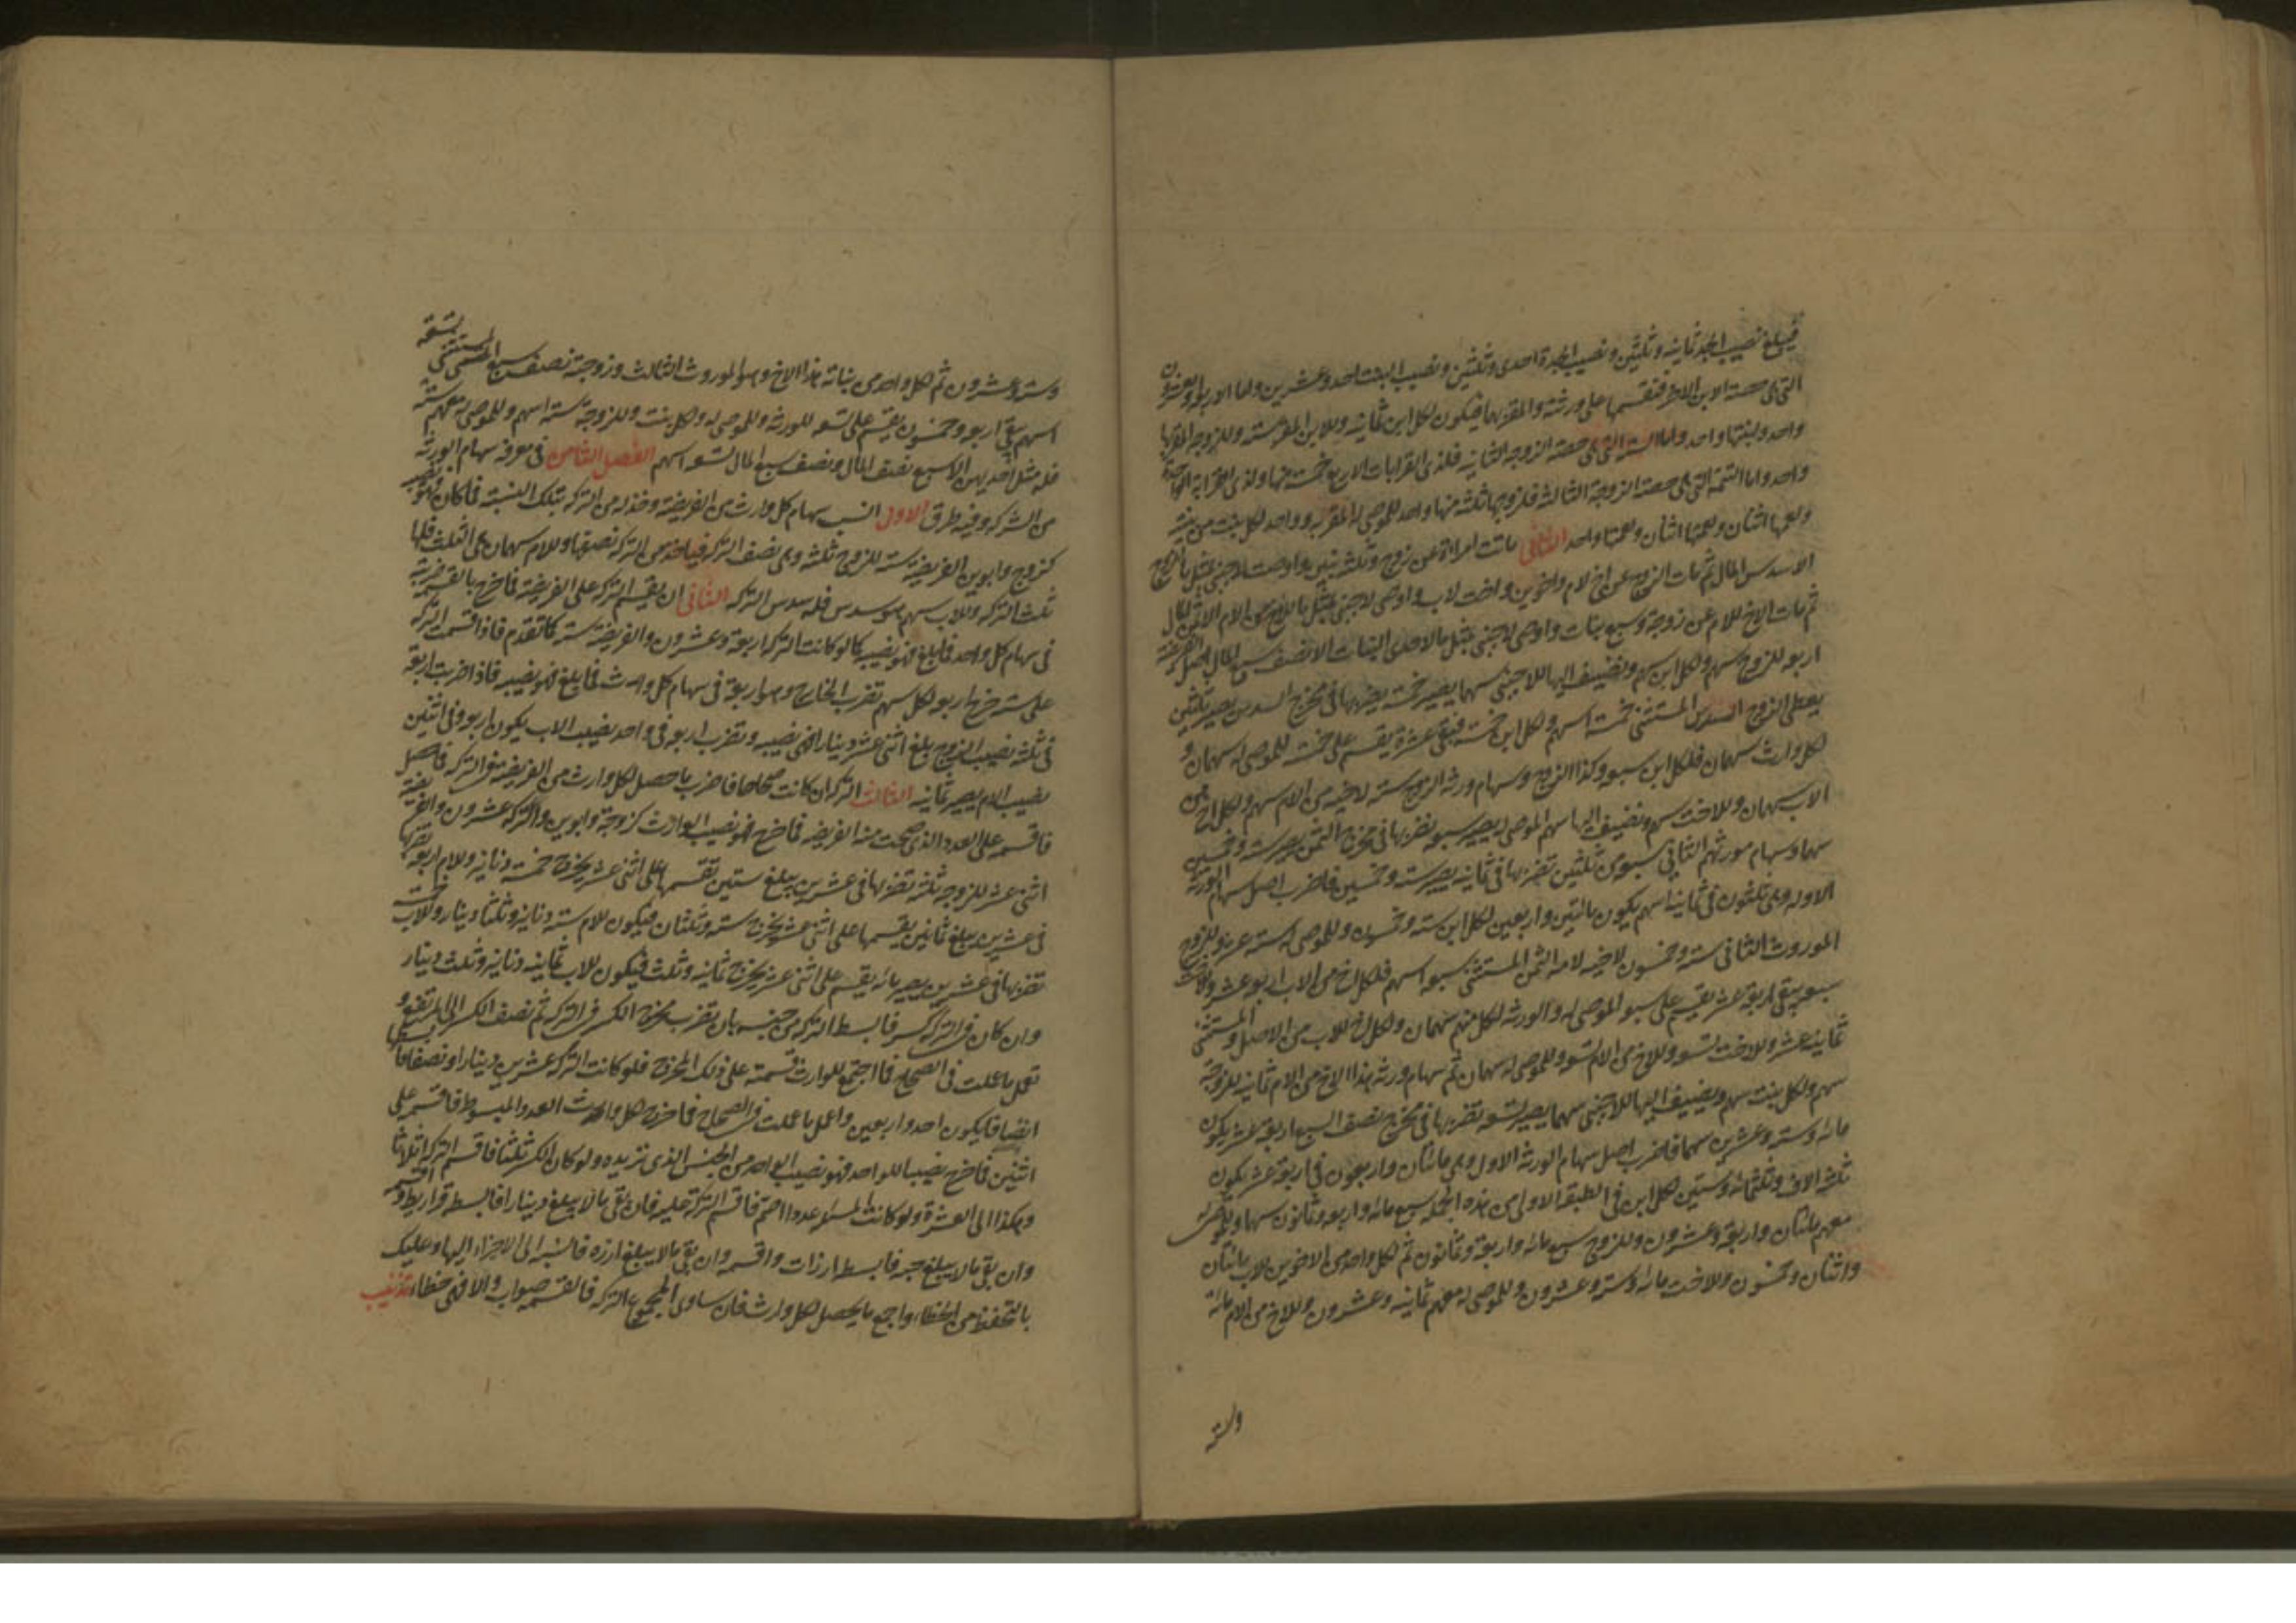 فيبلغ نصيب الجد ثمانيه وثلثين ونصيب الجدة احدى وثلثين ونصيب البنت احد وعشرين واما الاربع والعشرون
التي هي حصة الابن الاخر فنقسمها على ورثته والمقر بها فيكون لكل ابن ثمانيه وللابن المقر سته وللزوجه المقر بها
واحد ولبنتها واحد واما الستة التي هي حصة الزوجه الثانيه فلذى القرابات الاربع خمسة منها ولذى القرابة الواحدة
واحد واما التسعة التي هي حصة الزوجة الثالثه فلزوجها ثلثه منها واحد للموصى له المقر به وواحد لكل بنت من بنتيه
ولعمها اثنان ولعمتها واحد الثاني ماتت امراة عن زوج وثلثه بنين واوصت لاجنبى بمثل ما للزوج
الا سدس المال ثم مات الزوج عن اخ لام واخوين واخت لاب واوصى لاجنبى بمثل ما للاخ من الام الا ثمن المال
ثم مات الاخ للام عن زوجة وسبع بنات واوصى لاجنبى بمثل ما لاحدى البنات الا نصف سبع المال اصل الفريضة
اربعه للزوج سهم ولكل ابن سهم ونضيف اليها للاجنبى سهما يصير خمسة نضربها في مخرج السدس يصير ثلثين
يعطى الزوج السدس المستثنى خمسة اسهم ولكل ابن خمسة فيبقى عشرة يقسم على خمسة للموصى له سهمان و
لكل وارث سهمان فلكل ابن سبعه وكذا الزوج وسهام ورثه الزوج سته لاخيه من الام سهم ولكل اخ من
الاب سهمان وللاخت سهم ونضيف اليها سهم الموصى له يصير سبعه نضربها في مخرج الثمن يصير سته وخمسين
سهما وسهام مورثهم الثاني سبعه من ثلثين نضربها في ثمانيه يصير سته وخمسين فاضرب اصل سهام الورثة
الاوله وهى ثلثون في ثمانيه اسهم يكون مائتين واربعين لكل ابن سته وخمسون وللموصى له سته عشر وللزوج
الموروث الثاني سته وخمسون لاخيه لامه الثمن المستثنى سبعه اسهم فلكل اخ من الاب اربعه عشر وللاخت
سبعه يبقى اربعة عشر يقسم على سبعه الموصى له والورثه لكل منهم سهمان ولكل اخ للاب من الاصل والمستثنى
ثمانيه عشر وللاخت تسعه وللاخ من الام تسعه وللموصى له سهمان ثم سهام ورثه هذا الاخ من الام ثمانيه للزوجة
سهم ولكل بنت سهم ويضيف اليها للاجنبى سهما يصير تسعه نضربها في مخرج نصف السبع اربعة عشر يكون
مائه وسته وعشرين سهما فاضرب اصل سهام الورثه الاول وهى مائتان واربعون في اربعة عشر يكون
ثلثه الاف وثلثمائه وستين لكل ابن في الطبقه الاولى من هذه الجمله سبع مائه واربعه وثمانون سهما وللموصى له
معهم مائتان واربعة وعشرون وللزوج سبع مائه واربعة وثمانون ثم لكل واحد من الاخوين للاب مائتان
واثنان وخمسون وللاخت مائه وسته وعشرون وللموصى له معهم ثمانيه وعشرون وللاخ من الام مائة
وسته
وسته وعشرون ثم لكل واحد من بناته هذا الاخ وهو الموروث الثالث وزوجته نصف سبع المستثنى تسعه
اسهم يبقى اربعه وخمسون يقسم على تسعه للورثه وللموصى له ولكل بنت وللزوجة سته اسهم وللموصى له معهم سته
فله مثل احديهن الا سبع نصف المال ونصف سبع المال تسعه اسهم الفصل الثامن في معرفه سهام الورثه
من التركه وفيه طرق الاول انسب سهام كل وارث من الفريضه وخذ له من التركه بتلك النسبة فما كان فهو نصيبه
كزوج وابوين الفريضه سته للزوج ثلثه وهى نصف التركه فياخذ من التركه نصفها وللام سهمان هى الثلث فلها
ثلث التركه وللاب سهم هو سدس فله سدس التركه الثاني ان يقسم التركه على الفريضه فما خرج بالقسمه ضربته
في سهام كل واحد فما بلغ فهو نصيبه كما لو كانت التركه اربعة وعشرون والفريضه سته كما تقدم فاذا قسمت التركه
على سته خرج اربعه لكل سهم تضرب الخارج وهو اربعة في سهام كل وارث فما يبلغ فهو نصيبه فاذا ضربت اربعة
في ثلثه نصيب الزوج بلغ اثنى عشر دينارا فهى نصيبه وتضرب اربعه في واحد نصيب الاب يكون اربعه وفي اثنين
نصيب الام يصير ثمانيه الثالث التركه ان كانت صحاحا فاضرب ما حصل لكل وارث من الفريضه في التركه فما حصل
فاقسمه على العدد الذي صحت منه الفريضه فما خرج فهو نصيب الوارث كزوجه وابوين والتركه عشرون والفريضه
اثنى عشر للزوجه ثلثه تضربها في عشرين يبلغ ستين تقسمها على اثنى عشر يخرج خمسة دنانير وللام اربعه تضربها
في عشرين يبلغ ثمانين يقسمها على اثنى عشر يخرج سته وثلثان فيكون للام سته دنانير وثلثا دينار وللاب خمسة
تضربها في عشرين يصير مائه يقسم على اثنى عشر يخرج ثمانيه وثلث فيكون للاب ثمانيه دنانير وثلث دينار
وان كان في التركه كسر فابسط التركه من جنسه بان تضرب مخرج الكسر في التركه ثم تضف الكسر الى المرتفع و
تعمل ما عملت في الصحاح فما اجتمع للوارث قسمته على ذلك المخرج فلو كانت التركه عشرين دينارا ونصفا فابسطها
انصافا يكون احد واربعين واعمل ما عملت في الصحاح فما خرج لكل وارث من العدد المبسوط فاقسم على
اثنين فما خرج نصيبا للواحد فهو نصيب الواحد من الجنس الذى تريده ولو كان الكسر ثلثا فاقسم التركه اثلاثا
وهكذا الى العشرة ولو كانت المسئله عددا اصم فاقسم التركة عليه فان بقى ما لا يبلغ دينارا فابسطه قراريط واقسم
وان بقى ما لا يبلغ حبه فابسطه ارزات واقسمه وان بقى ما لا يبلغ ارزه فانسبه الى الاجزاء اليها وعليك
بالتحفظ من الخطاء واجمع ما يحصل لكل وارث فان ساوى المجموع التركه فالقسمه صواب والا فهى خطاء تذنيب